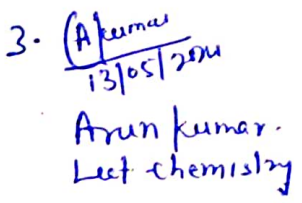 3. Akumar
13/05/2024
Arun kumar.
Lect. chemistry